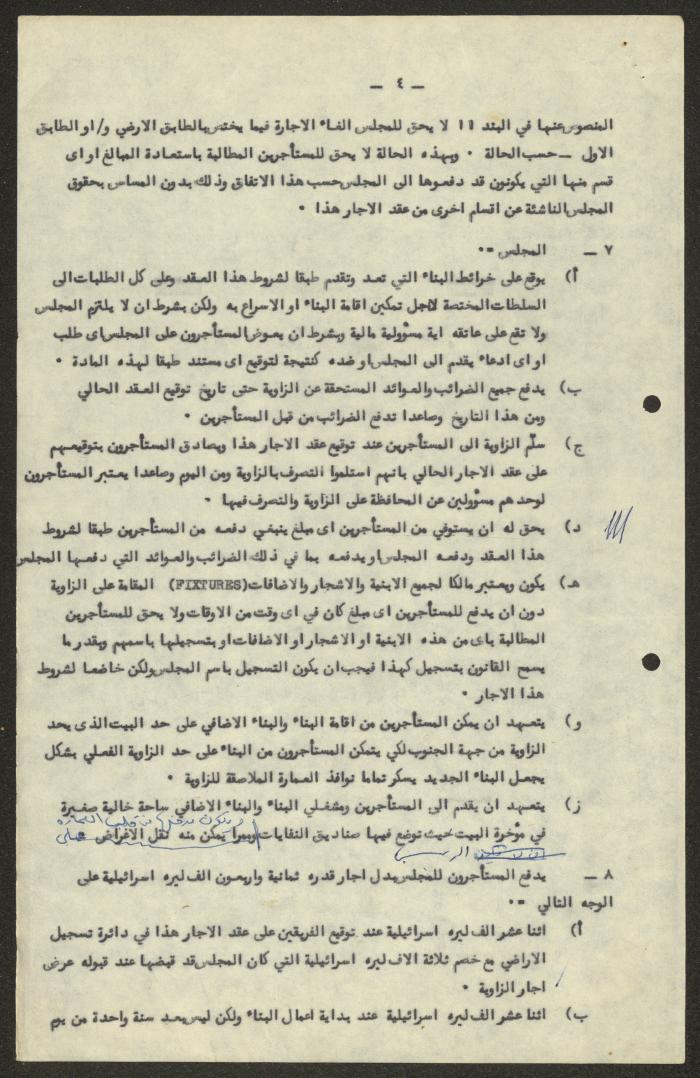 — ٤ —
المنصوص عنها في البند ١١ لا يحق للمجلس الغاء الاجارة فيما يختص بالطابق الارضي و/او الطابق
الاول — حسب الحالة . وبهذه الحالة لا يحق للمستأجرين المطالبة باستعادة المبالغ او اى
قسم منها التي يكونون قد دفعوها الى المجلس حسب هذا الاتفاق وذلك بدون المساس بحقوق
المجلس الناشئة عن اقسام اخرى من عقد الاجار هذا .
٧ — المجلس :-
أ) يوقع على خرائط البناء التي تعد وتقدم طبقا لشروط هذا العقد وعلى كل الطلبات الى
السلطات المختصة لاجل تمكين اقامة البناء او الاسراع به ولكن بشرط ان لا يلتزم المجلس
ولا تقع على عاتقه اية مسؤولية مالية وبشرط ان يعوض المستأجرون على المجلس اى طلب
او اى ادعاء يقدم الى المجلس او ضده كنتيجة لتوقيع اى مستند طبقا لهذه المادة .
ب) يدفع جميع الضرائب والعوائد المستحقة عن الزاوية حتى تاريخ توقيع العقد الحالي
ومن هذا التاريخ وصاعدا تدفع الضرائب من قبل المستأجرين .
ج) سلّم الزاوية الى المستأجرين عند توقيع عقد الاجار هذا ويصادق المستأجرون بتوقيعهم
على عقد الاجار الحالي بانهم استلموا التصرف بالزاوية ومن اليوم وصاعدا يعتبر المستأجرون
لوحدهم مسؤولين عن المحافظة على الزاوية والتصرف فيها .
د) يحق له ان يستوفي من المستأجرين اى مبلغ ينبغي دفعه من المستأجرين طبقا لشروط
هذا العقد ودفعه المجلس او يدفعه بما في ذلك الضرائب والعوائد التي دفعها المجلس
هـ) يكون ويعتبر مالكا لجميع الابنية والاشجار والاضافات (FIXTURES) المقامة على الزاوية
دون ان يدفع للمستأجرين اى مبلغ كان في اى وقت من الاوقات ولا يحق للمستأجرين
المطالبة باى من هذه الابنية او الاشجار او الاضافات او بتسجيلها باسمهم وبقدر ما
يسمح القانون بتسجيل كهذا فيجب ان يكون التسجيل باسم المجلس ولكن خاضعا لشروط
هذا الاجار .
و) يتعهد ان يمكن المستأجرين من اقامة البناء والبناء الاضافي على حد البيت الذى يحد
الزاوية من جهة الجنوب لكي يتمكن المستأجرون من البناء على حد الزاوية الفعلي بشكل
يجعل البناء الجديد يسكر تماما نوافذ العمارة الملاصقة للزاوية .
ز) يتعهد ان يقدم الى المستأجرين ومشغلي البناء والبناء الاضافي ساحة خالية صغيرة
في مؤخرة البيت بحيث توضع فيها صناديق النفايات وممرا يمكن منه نقل الاغراض
٨ — يدفع المستأجرون للمجلس بدل اجار قدره ثمانية واربعون الف ليره اسرائيلية على
الوجه التالي :-
أ) اثنا عشر الف ليره اسرائيلية عند توقيع الفريقين على عقد الاجار هذا في دائرة تسجيل
الاراضي مع خصم ثلاثة الاف ليره اسرائيلية التي كان المجلس قد قبضها عند قبوله عرض
اجار الزاوية .
ب) اثنا عشر الف ليره اسرائيلية عند بداية اعمال البناء ولكن ليس بعد سنة واحدة من يوم